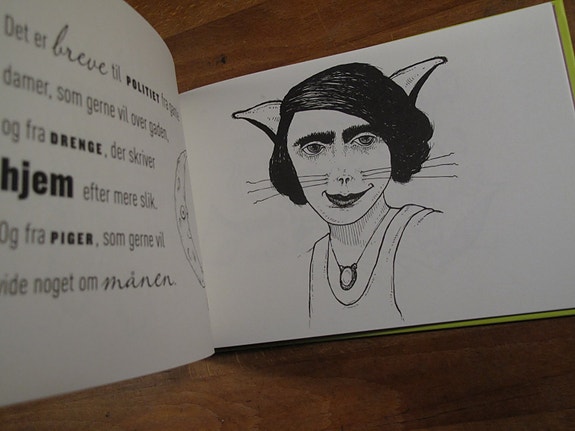 Det er breve til POLITIET fra gamle
damer, som gerne vil over gaden,
og fra DRENGE, der skriver
hjem efter mere slik.
Og fra PIGER, som gerne vil
vide noget om månen.